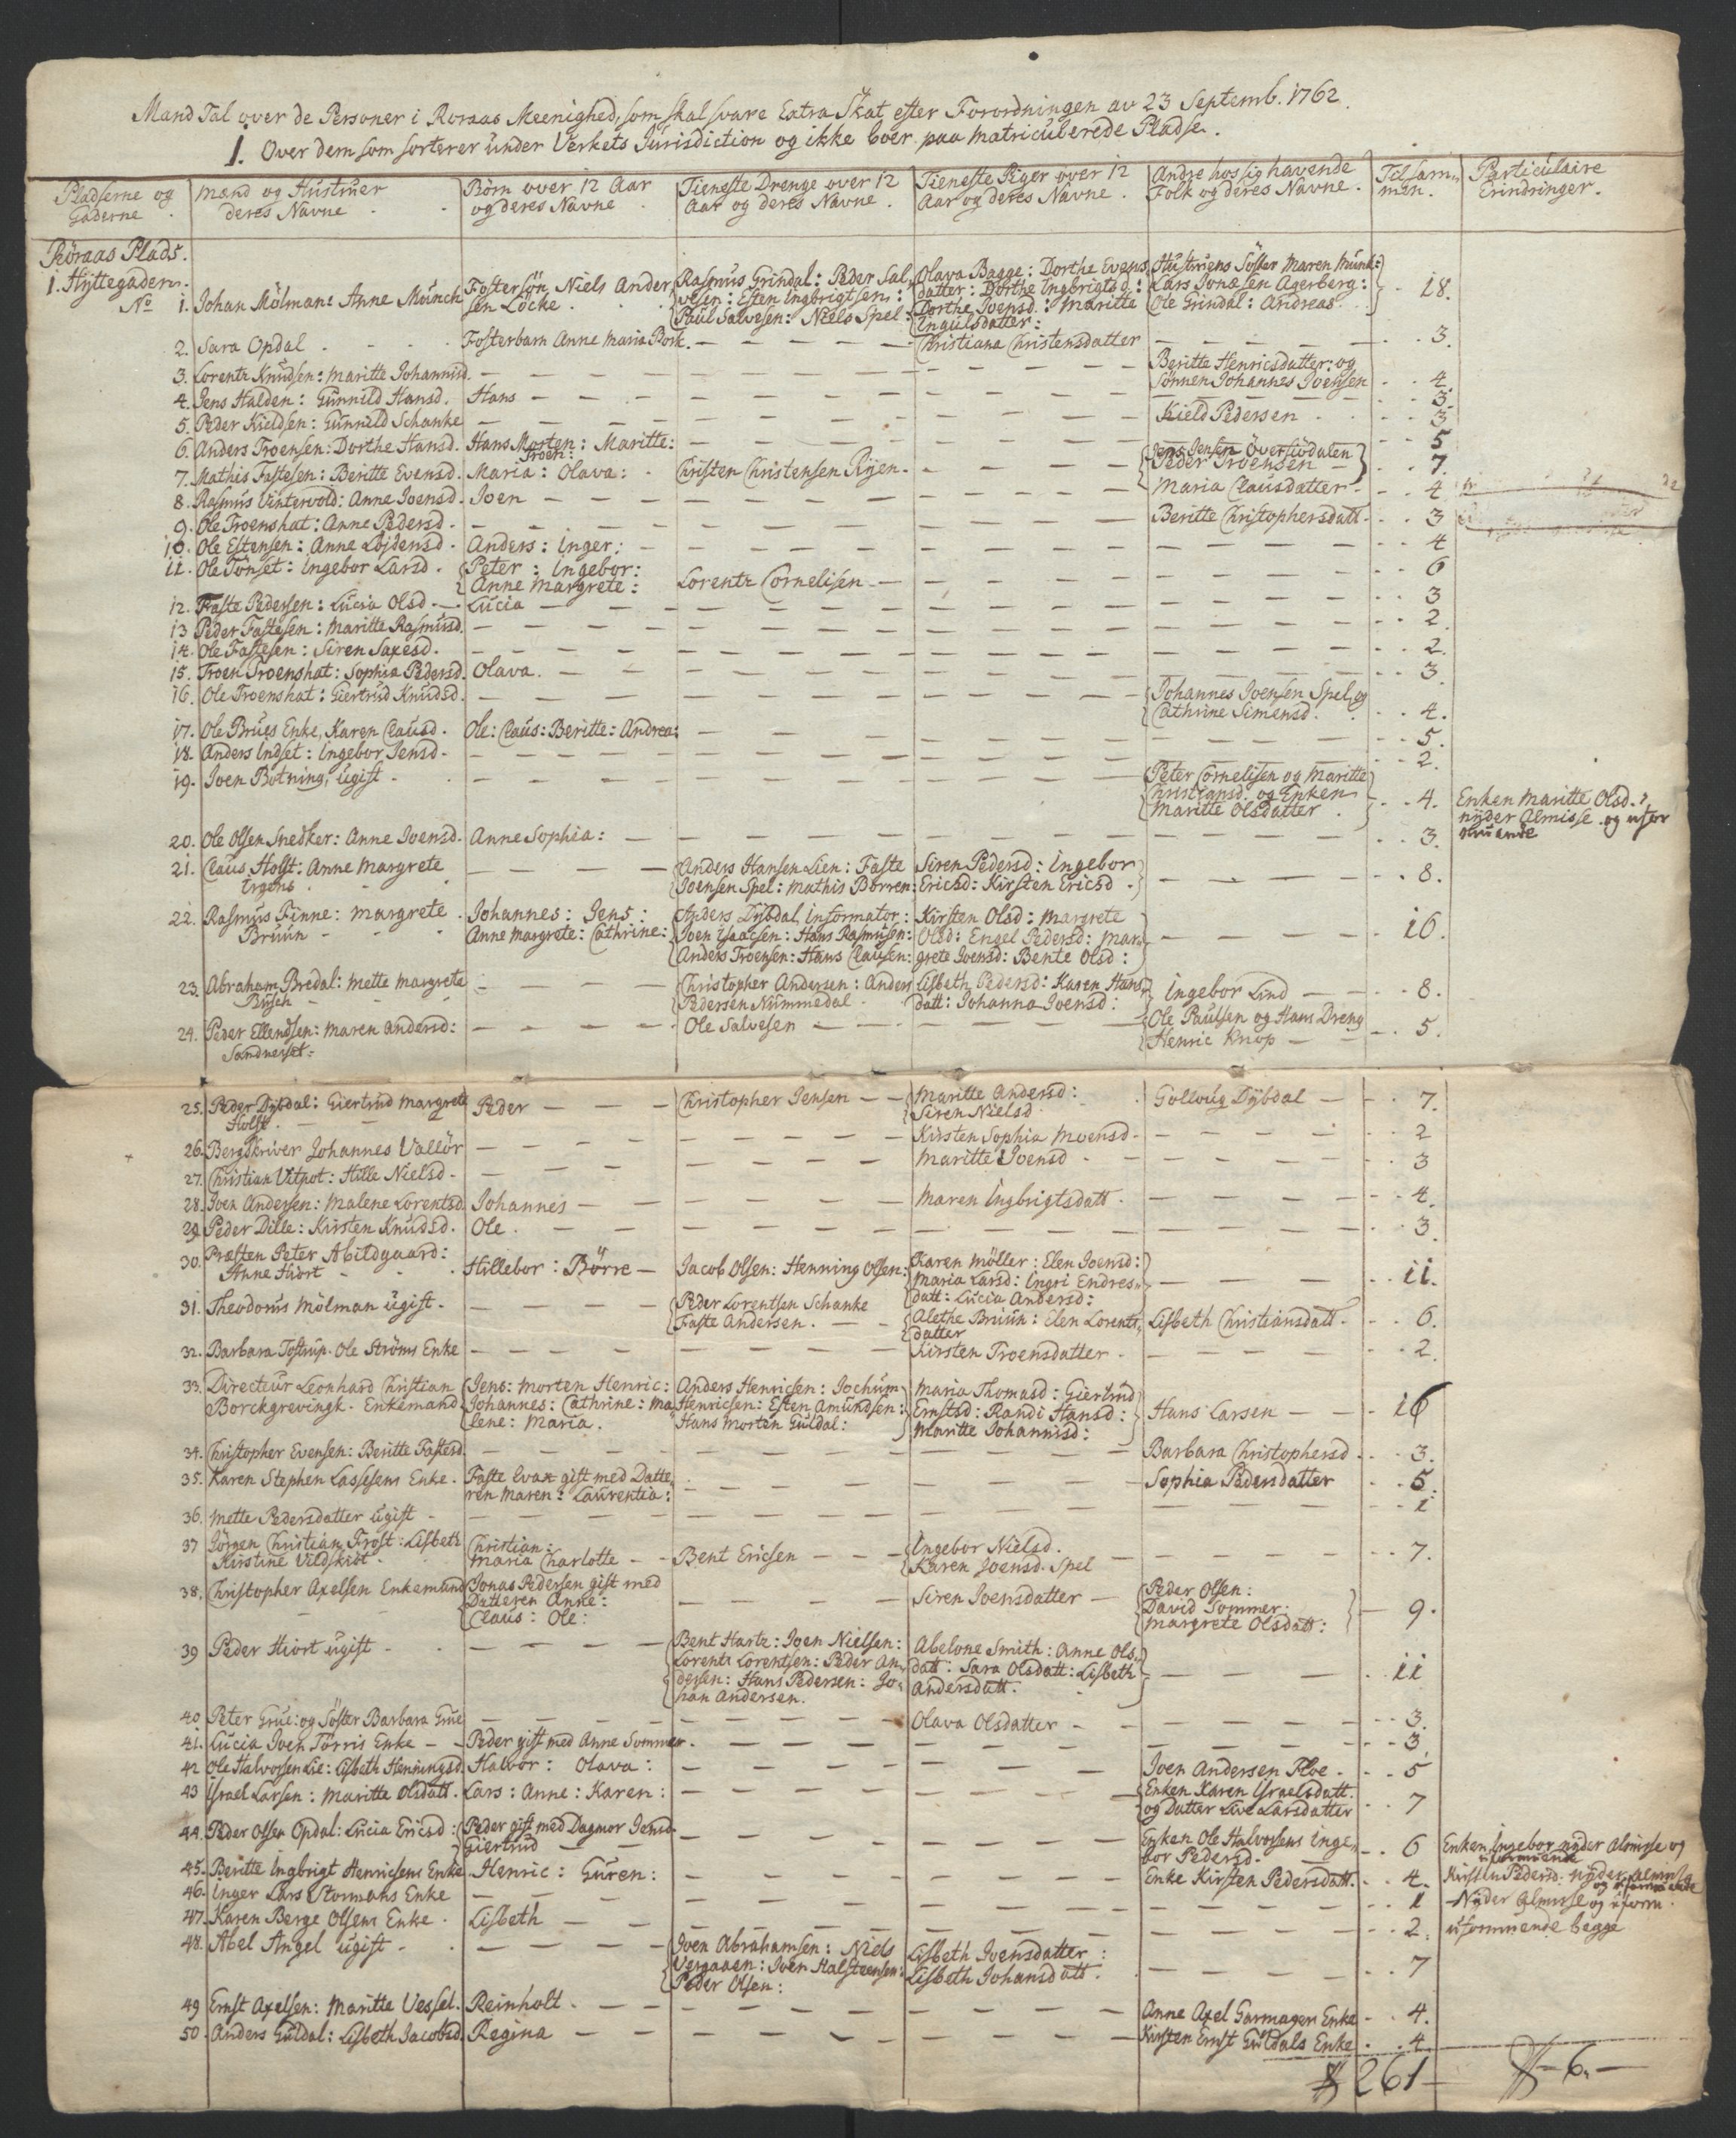 Mand Tal over de Personer i Roraas Meenighed, som skal svare Extra Skat efter Forordningen av 23 Septemb. 1762.
1. Over dem som sorterer under Verkets Jurisdiction og ikke boer paa matriculerede Pladse.
Pladserne og Gaderne . Mænd og Hustruer deres Navne . Børn over 12 Aar og deres Navne . Tieneste Drenge over 12 Aar og deres Navne . Tieneste Piger over 12 Aar og deres Navne . Andre hos sig havende Folk og deres Navne . Tilsammen. Particulaire Erindringer.
Röraas Plads.
1. Hyttegaden.
No 1. Johan Mölman: Anne Münch Fostersön Niels Andersen Löcke . Rasmus Grindal: Peder Salvesen: Esten Ingbrigtsen: Paul Salvesen: Niels Spel: Olava Bagge: Dorthe Evensdatter: Dorthe Ingbrigtsd: Dorthe Joensd: Maritte Ingulsdatter: Hustruens Söster Maren Münk: Lars Jonæsen Agerberg: Ole Grindal: Andreas 18.
2. Sara Opdal Fosterbarn Anne Maria Bork. Christiana Christensdatter 3.
3. Lorentz Knudsen: Maritte Johannisd. Beritte Henricsdatter: og Sönnen Johannes Joensen 4.
4. Jens Halden: Gunnild Hansd. Hans 3.
5. Peder Kieldsen: Gunnild Schanke Kield Pedersen 3
6. Anders Troensen: Dorthe Hansd. Hans Morten: Maritte: Troen: 5
7. Mathis Fastesen: Beritte Evensd. Maria: Olava: Christen Christensen Ryen. Jens Jensen Överliödalen Peder Troensen 7.
8. Rasmus Vintervold: Anne Joensd. Joen Maria Clausdatter 4
9. Ole Troenshat: Anne Pedersd. Beritte Christophersdatt. 3
10. Ole Estensen: Anne Löjdensd. Anders: Inger: 4
11. Ole Tönset: Ingebor Larsd. Peter: Ingebor: Anne Margrete: Lorentz Cornelisen 6
12. Faste Pedersen: Lucia Olsd. Lucia 3
13 Peder Fastesen: Maritte Rasmusd. 2.
14. Ole Fastesen: Siren Saxesd. 2.
15. Troen Troenshat: Sophia Pedersd. Olava. 3.
16. Ole Troenshat: Giertrud Knudsd. Johannes Joensen Spel og Cathrine Simensd. 4.
17. Ole Brues Enke, Karen Clausd. Ole: Claus: Beritte: Andrea: 5.
18. Anders Indset: Ingebor Jensd. 2.
19. Joen Botning, ugift. Peter Cornelisen og Maritte Christiansd. og Enken Maritte Olsdatter 4. Enken Maritte Olsd. nyder Almisse og uformuende
20. Ole Olsen Snedker: Anne Joensd. Anne Sophia: 3.
21. Claus Holst: Anne Margrete Irgens. Anders Hansen Lien: Faste Joensen Spel: Mathis Borren: Siren Pedersd: Ingebor Ericsd: Kirsten Ericsd. 8.
22. Rasmus Finne: Margrete Bruun Johannes: Jens: Anne Margrete: Cathrine: Anders Dybdal Informator: Joen Isaacsen: Hans Rasmusen: Anders Troensen: Hans Clausen: Kirsten Olsd: Margrete Olsd: Engel Pedersd: Margrete Joensd: Bente Olsd: 16.
23. Abraham Bredal: Mette Margrete Busch Christopher Andersen: Anders Pedersen Nummedal Lisbeth Pedersd: Karen Hansdatt: Johanna Joensd: Ingebor Lind 8.
24. Peder Ellendsen: Maren Andersd: Sandnerset: Ole Salvesen Ole Paulsen og Hans Dreng Henric Knop 5.
25. Peder Dybdal: Giertrud Margrete Holst. Peder Christopher Jensen Maritte Andersd: Siren Nielsd. Gollvug Dybdal 7.
26. Bergskriver Johannes Vallör Kirsten Sophia Moensd. 2
27. Christian Vitpot: Hille Nielsd. Maritte Joensd 3
28. Joen Andersen: Malene Lorentsd. Johannes Maren Ingbrigtsdatt. 4.
29. Peder Dille: Kirsten Knudsd. Ole. 3.
30. Præsten Peter Abildgaard: Anne Hiort Hillebor: Börre Jacob Olsen: Henning Olsen: Karen Möller: Elen Joensd: Maria Larsd: Ingri Endresdatt: Lucia Andersd: 11.
31. Theodorus Mölman ugift. Peder Lorentsen Schanke Faste Andersen. Alethe Bruun: Elen Lorentsdatter Lisbeth Christiansdatt. 6.
32. Barbara Tostrup. Ole Ströms Enke Kirsten Troensdatter. 2.
33. Directeur Leonhard Christian Borckgrevingk. Enkemand Jens: Morten Henric: Johannes: Cathrine: Malene: Maria. Anders Henricsen: Jochum Henricsen: Esten Amundsen: Hans Morten Guldal: Maria Thomasd: Giertrud Ernstsd: Randi Hansd: Maritte Johannisd: Hans Larsen 16
34. Christopher Evensen: Beritte Fastesd. Barbara Christophersd. 3.
35. Karen Stephen Lassesens Enke. Faste Evan gift med Datteren Maren: Laurentia: Sophia Pedersdatter 5.
36. Mette Pedersdatter ugift 1
37 Jörgen Christian Frost: Lisbeth Kirstine Vildskiöt. Christian: Maria Charlotte Bent Ericsen Ingebor Nielsd. Karen Joensd. Spel 7.
38. Christopher Axelsen Enkemand Jonas Pedersen gift med Datteren Anne: Claus: Ole: Siren Joensdatter Peder Olsen: David Sommer: Margrete Olsdatt: 9.
39 Peder Hiort ugift Bent Hartz: Joen Nielsen: Lorentz Lorentsen: Peder Andersen: Hans Pedersen: Johan Andersen. Abelone Smith: Anne Olsdatt: Sara Olsdatt: Lisbeth Andersdatt. 11
40. Peter Grue: og Söster Barbara Grue Olava Olsdatter 3.
41. Lucia Joen Törris Enke Peder gift med Anne Sommer. 3
42 Ole Halvorsen Lie: Lisbeth Henningsd. Halvor: Olava: Joen Andersen Floe. 5
43 Israel Larsen: Maritte Olsdatt. Lars: Anne: Karen: Enken Karen Israelsdatt. og Datter Live Larsdatter 7
44. Peder Olsen Opdal: Lucia Ericsd: Peder gift med Dagmor Jensd. Giertrud Enken Ole Halvorsens Ingebor Pedersd. 6 Enken Ingebor nyder Almisse og uformuende
45. Beritte Ingbrigt Henricsens Enke Henric: Guren: Enke Kirsten Pedersdatt. 4. Kirsten Pedersd: nyder Almisse og uformuende
46. Inger Lars Stormans Enke 1 Nyder Almisse og uform.
47. Karen Berge Olsens Enke. Lisbeth 2. uformuende begge
48. Abel Angel ugift. Joen Abrahamsen: Niels Vergaaen: Joen Halsteensen: Peder Olsen: Lisbeth Joensdatter: Lisbeth Johansdatt. 7
49 Ernst Axelsen: Maritte Vessel. Reinholt. Anne Axel Garmagers Enke 4.
50. Anders Guldal: Lisbeth Jacobsd. Regina Kirsten Ernst Guldals Enke 4.
261 6.